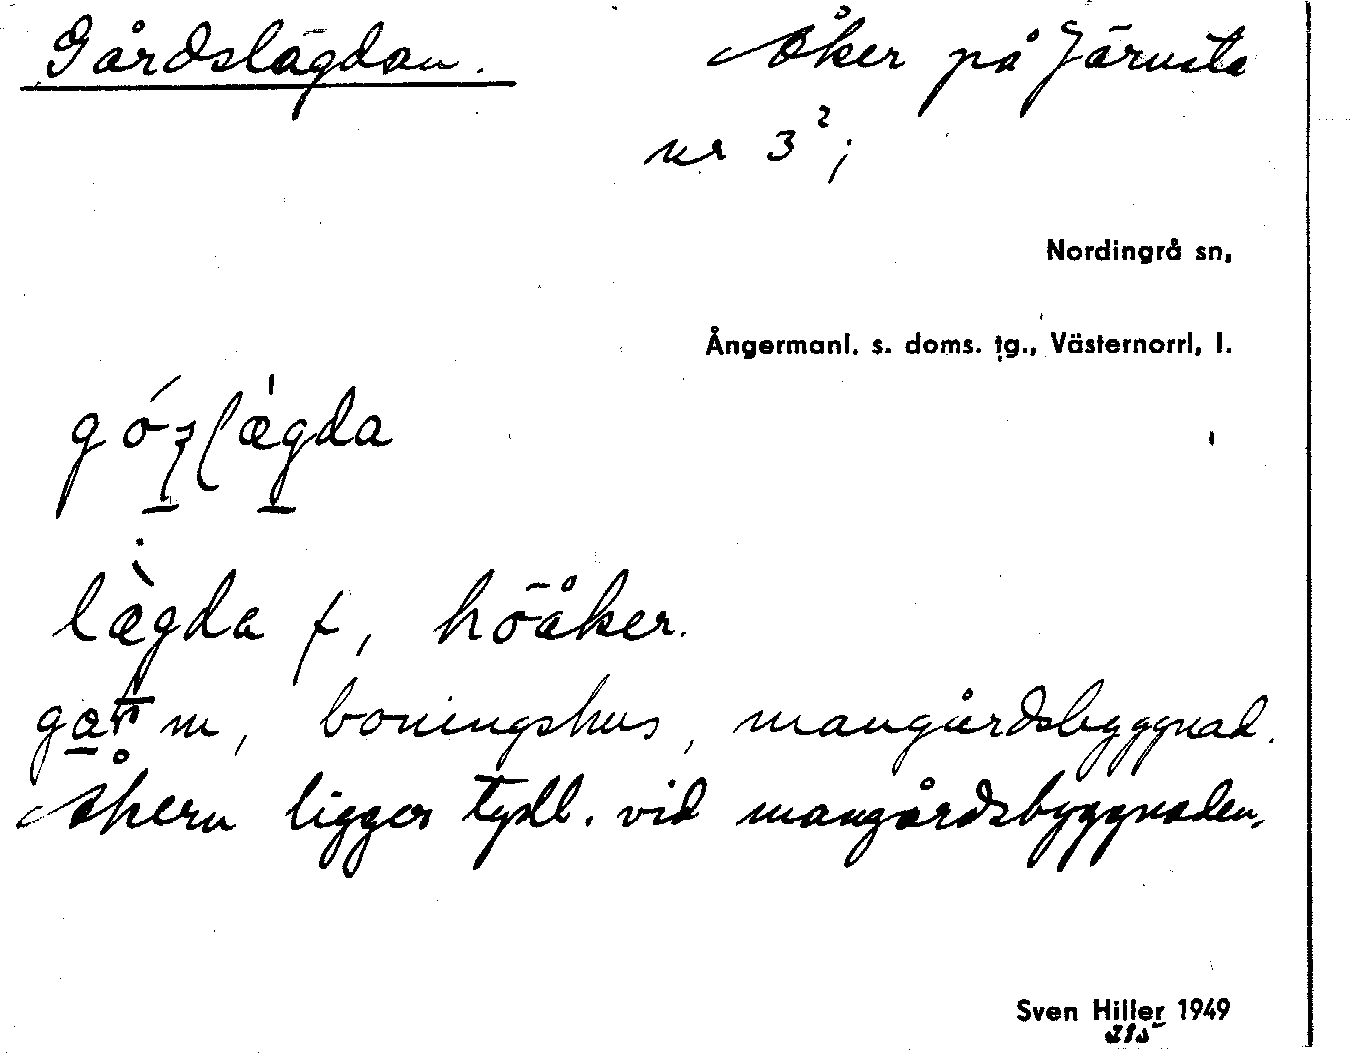 Gårdslägdan. Åker på Järnsta
nr 3²;
Nordingrå sn,
Ångermanl. s. doms. tg., Västernorrl, l.
lægda f, höåker.
m, boningshus, mangårdsbyggnad.
Åkern ligger tydl. vid mangårdsbyggnaden.
Sven Hiller 1949